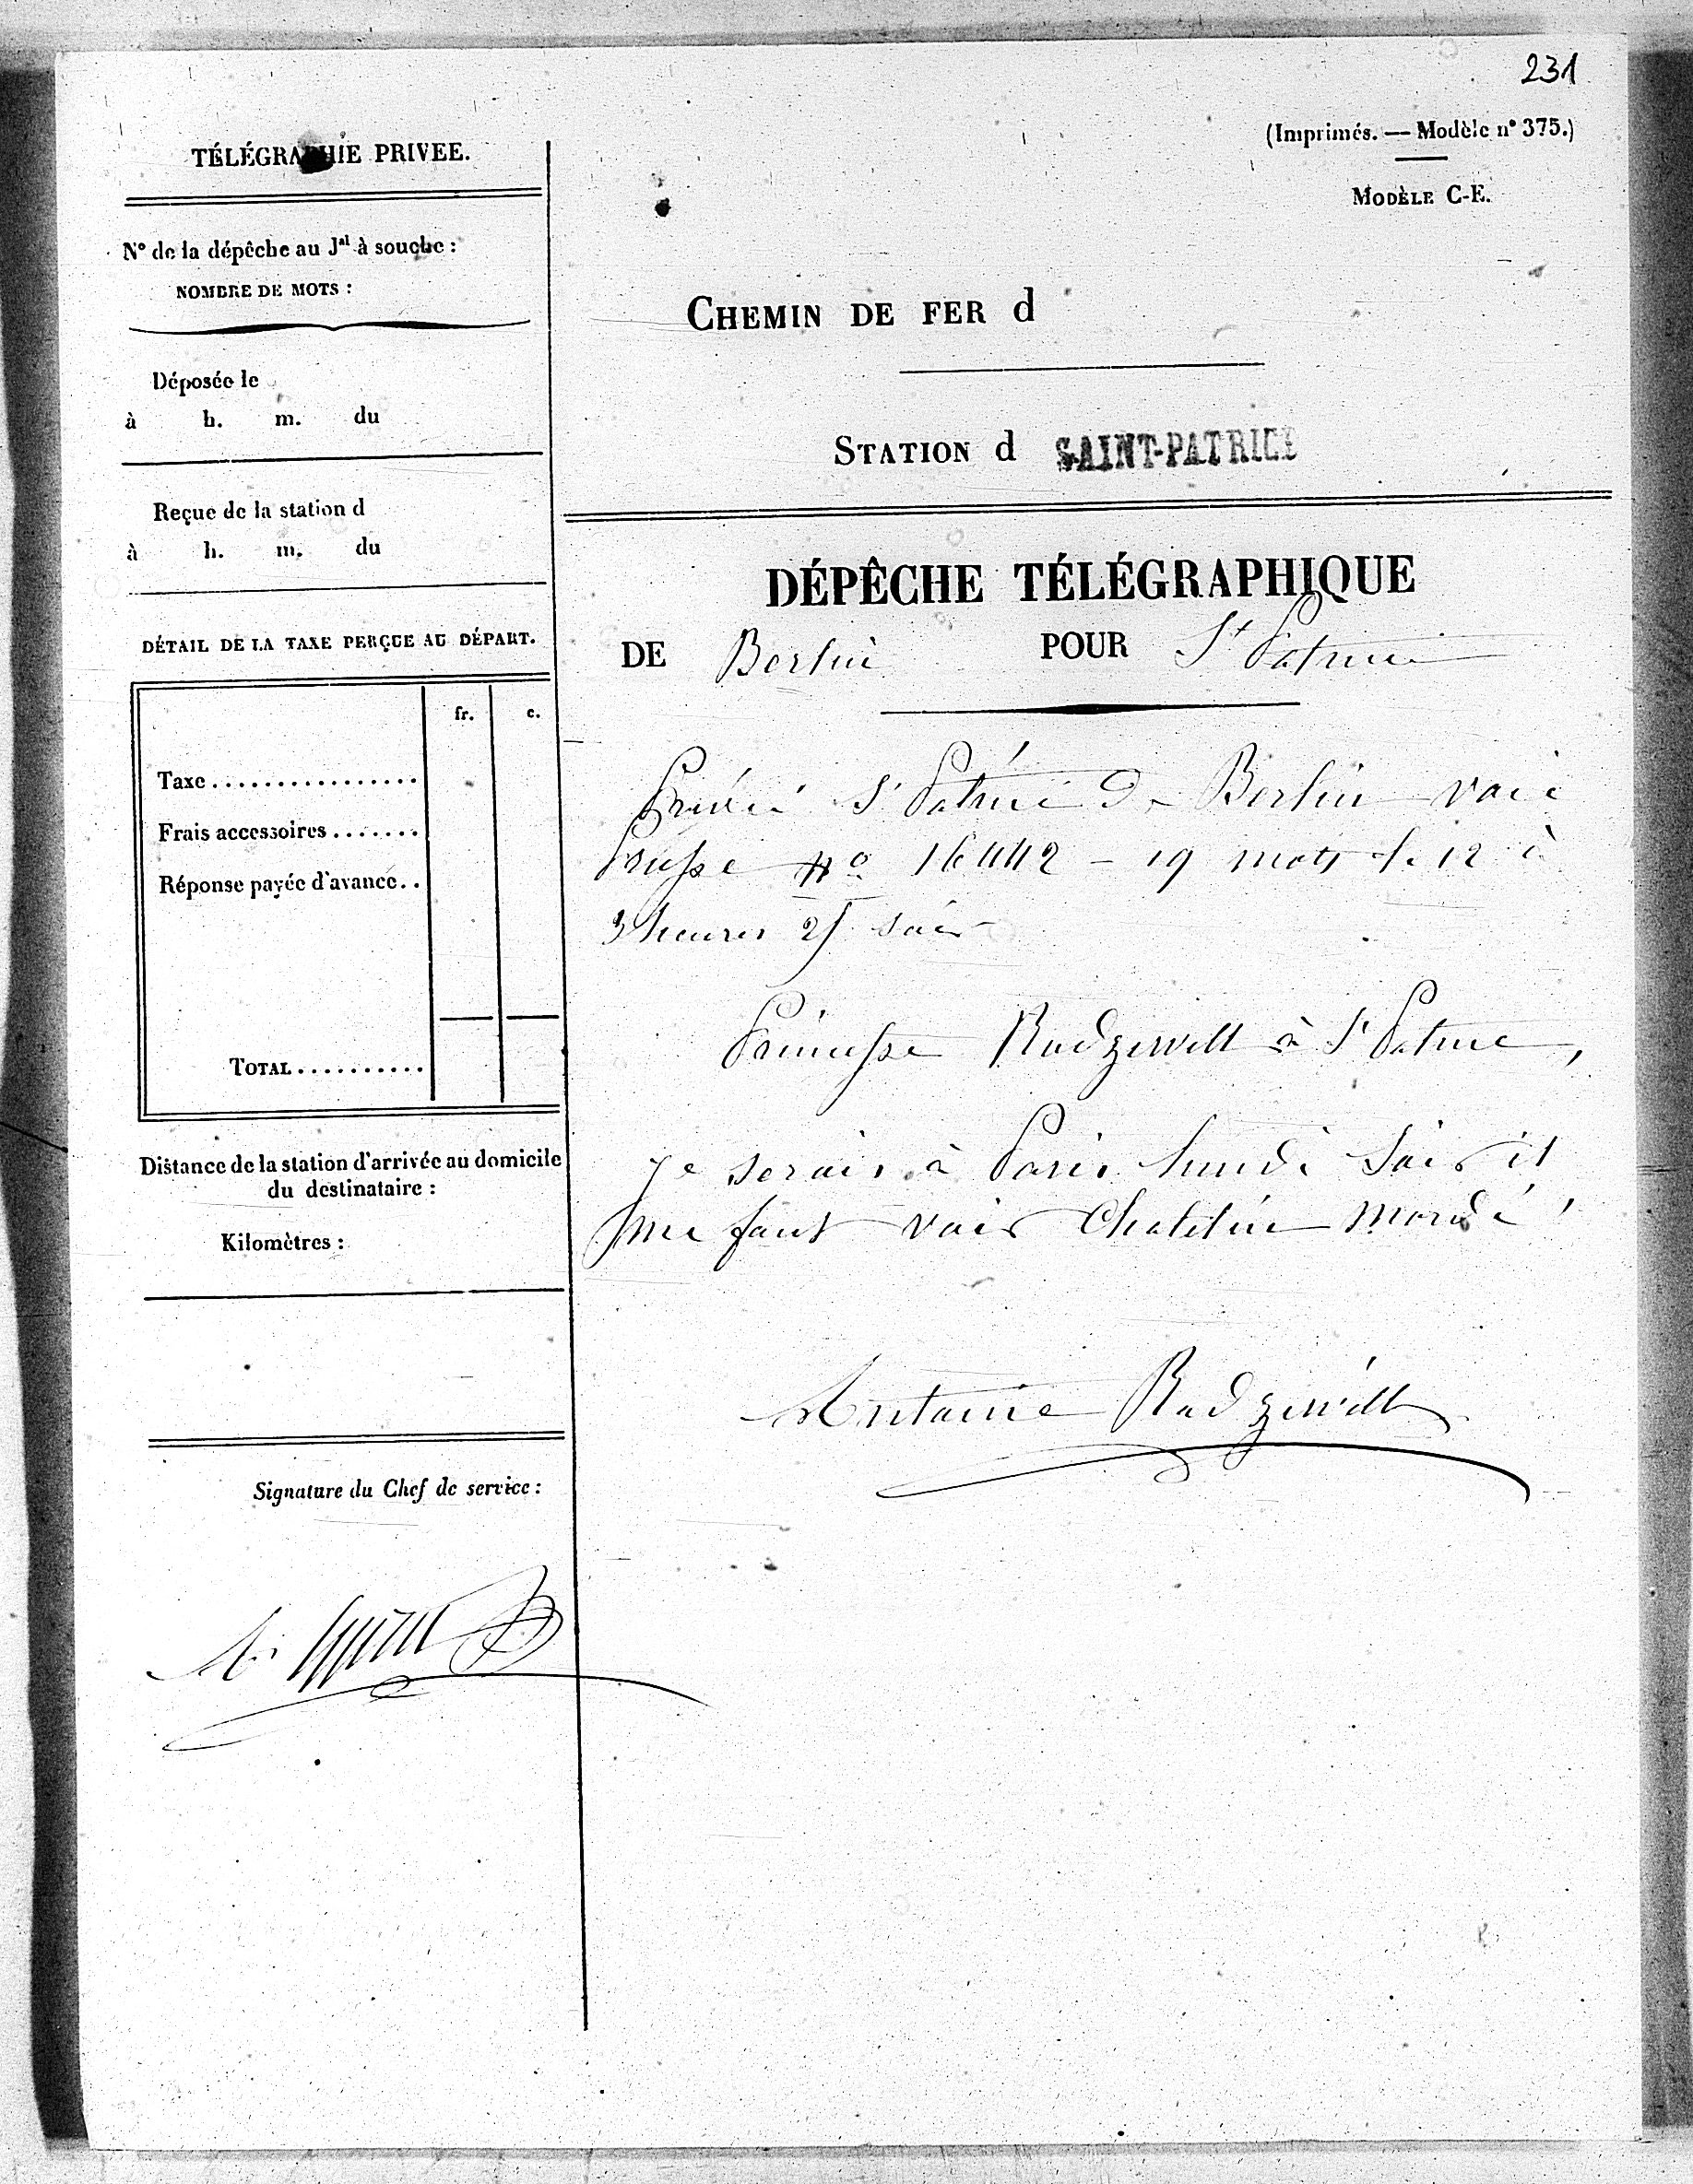 231
(Imprimés. — Modèle n° 375.)
MODÈLE C-E.
TÉLÉGRAPHIE PRIVEE.
N° de la dépêche au Jal à souche :
NOMBRE DE MOTS :
Déposée le
à h. m. du
Reçue de la station d
à h. m. du
DÉTAIL DE LA TAXE PERÇUE AU DÉPART.
fr. c.
Taxe................
Frais accessoires.......
Réponse payée d'avance..
TOTAL..........
Distance de la station d'arrivée au domicile
du destinataire :
Kilomètres :
Signature du Chef de service :
CHEMIN DE FER d
STATION d SAINT-PATRICE
DÉPÊCHE TÉLÉGRAPHIQUE
DE Berlin POUR St Patrice
Privée St Patrice de Berlin voie
Prusse No 16442 - 19 mots le 12 à
3 heures 25 soir
Princesse Radziwill à St Patrice,
Je serais à Paris lundi soir il
me faut voir mardi
Antoine Radziwill